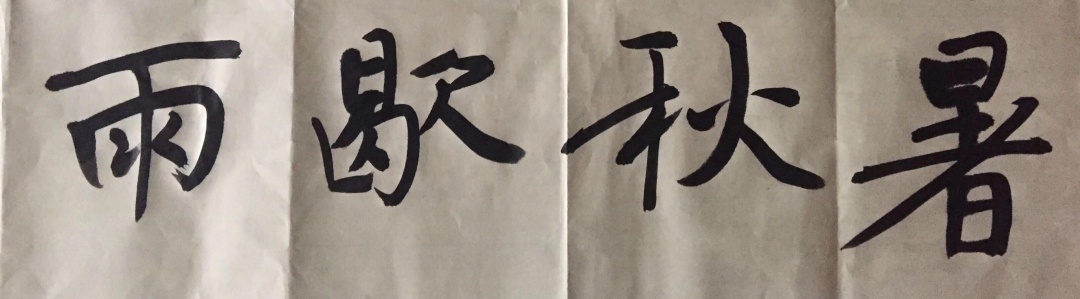 雨歇秋暑